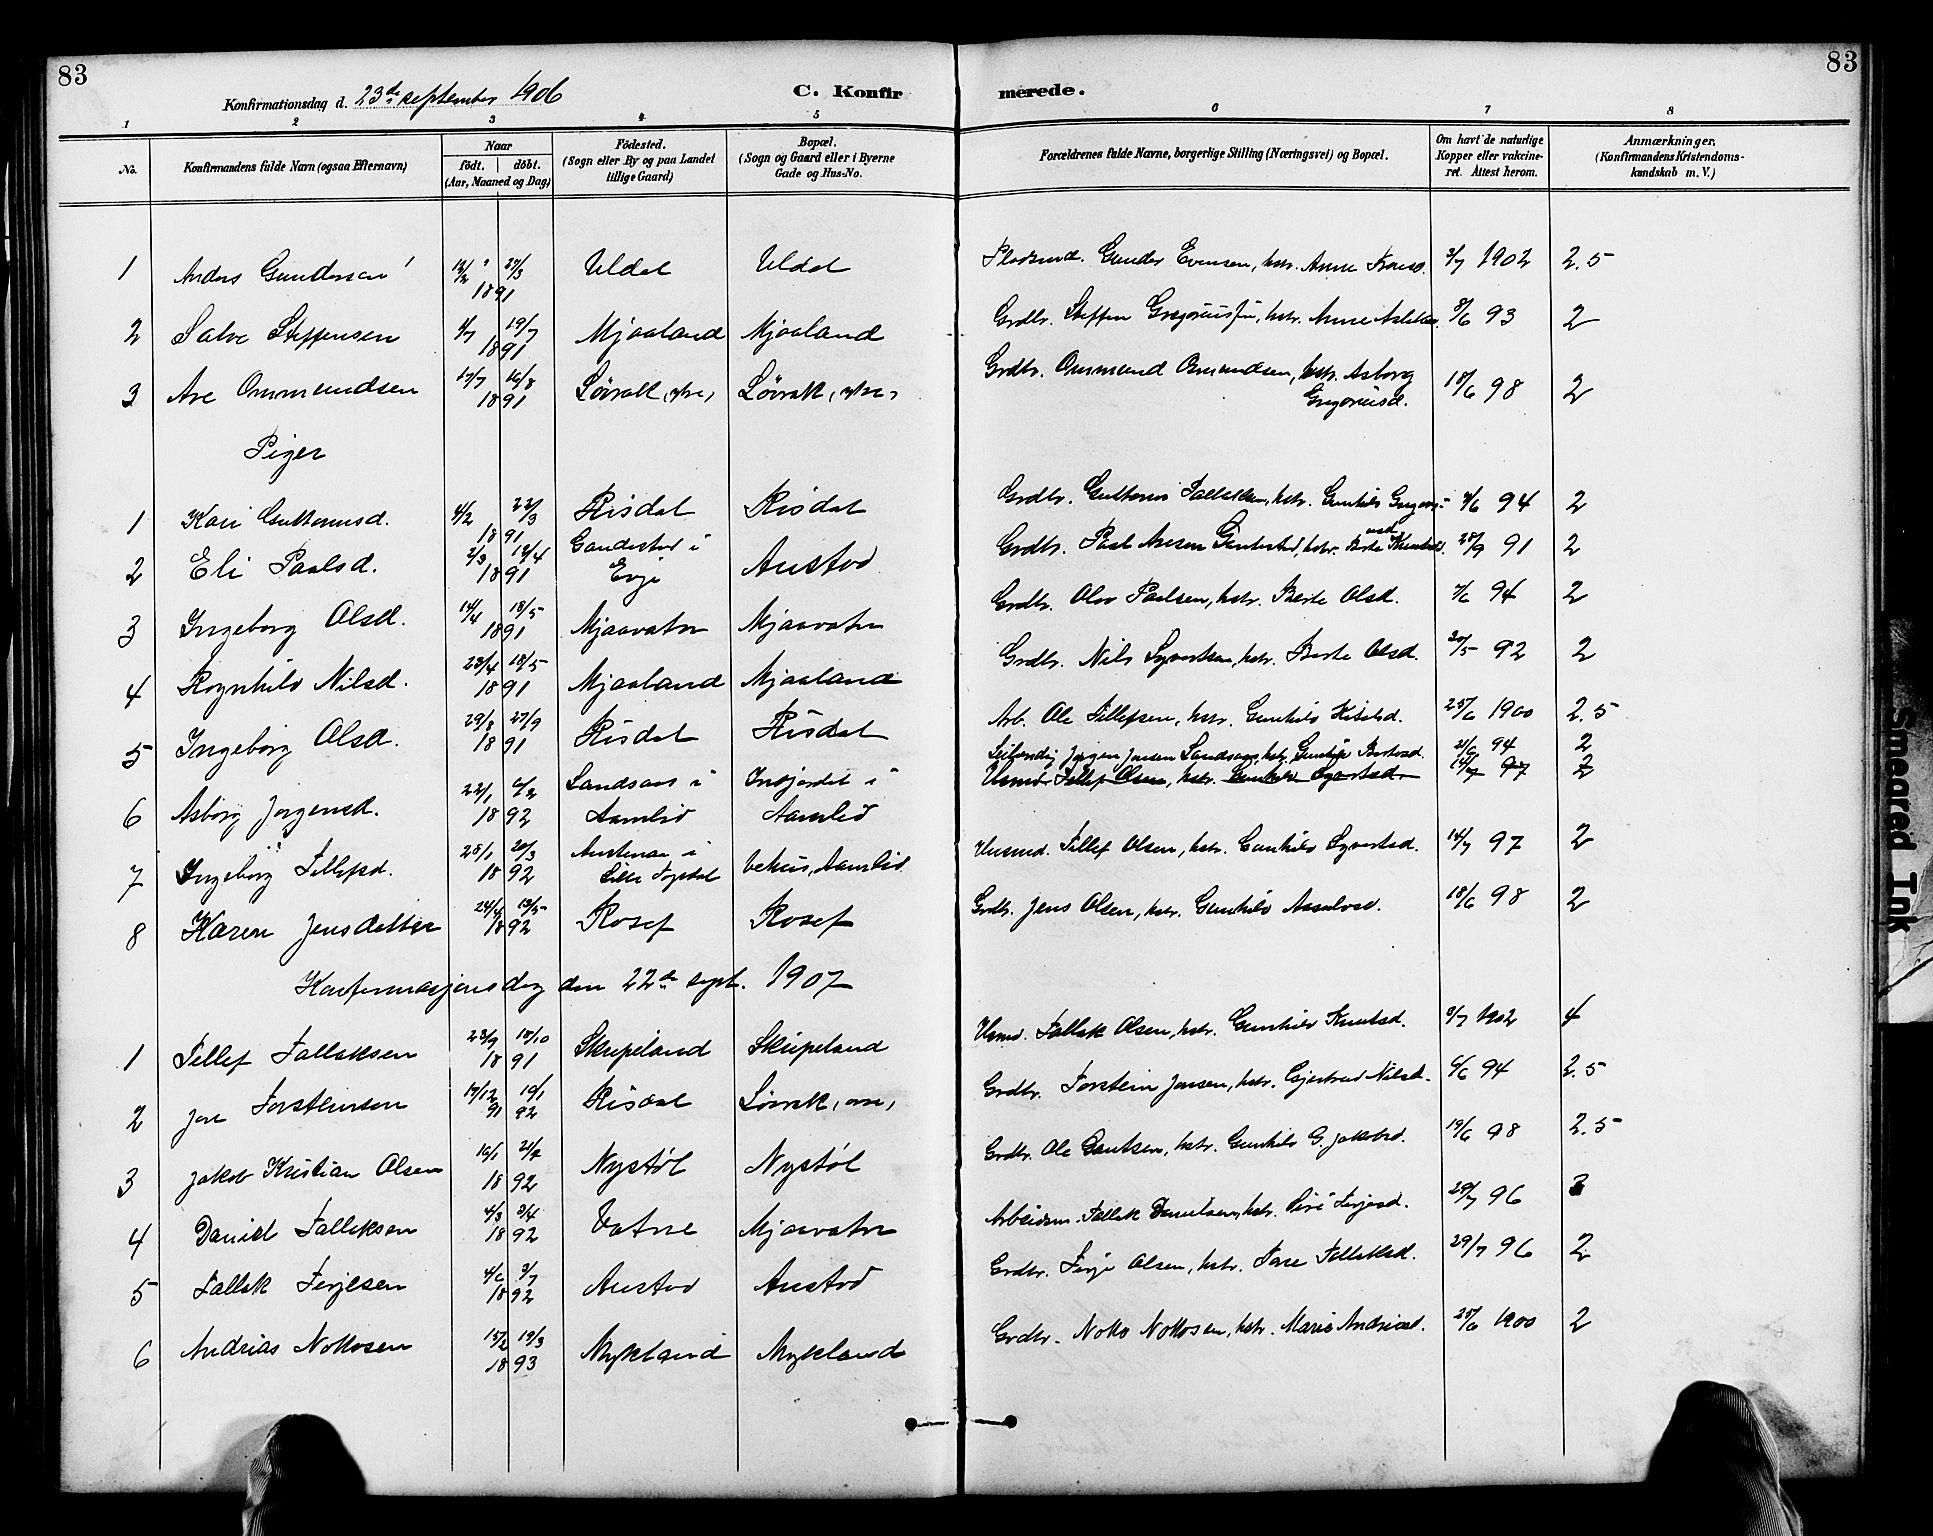 83
Konfirmationsdag d. 23de september 1906
C. Konfirmerede.
83
1 2 3 4 5 6 7 8
No. Konfirmandens fulde Navn (ogsaa Efternavn) Naar födt. döbt. (Aar, Maaned og Dag) Födested. (Sogn eller By og paa Landet tillige Gaard) Bopæl. (Sogn og Gaard eller i Byerne Gade og Hus-No. Forældrenes fulde Navne, borgerlige Stilling (Næringsvei) og Bopæl. Om havt de naturlige Kopper eller vakcineret. Attest herom. Anmærkninger. (Konfirmandens Kristendomskundskab m. V.)
1 Anders Gundersen 12/2 27/3 1891 Uldal Uldal Gunder Evensen, hstr. Anne 3/7 1902 2.5
2 Salve Steffensen 4/7 19/7 1891 Mjaaland Mjaaland Grdbr. Steffen Gregoriusen, hstr. Anne 8/6 93 2
3 Are Ommundsen 17/7 16/8 1891 Løvrak, øvre, Løvrak, øvre, Grdbr. Ommund Omundsen, hstr. Asborg Gregoriusd. 18/6 98 2
Piger
1 Kari Guttormsd. 4/2 22/3 1891 Risdal Risdal Grdbr. Guttorm Tallaksen, hstr. Gunhild 4/6 94 2
2 Eli Paalsd. 2/3 12/4 1891 i Evje Austad Grdbr. Paal Aresen hstr. Berte 28/9 91 2
3 Ingeborg Olsd. 14/4 18/5 1891 Mjaavatn Mjaavatn Grdbr. Olav Paalsen, hstr. Berte Olsd. 4/6 94 2
4 Rognhild Nilsd. 23/4 18/5 1891 Mjaaland Mjaaland Grdbr. Nils Syvertsen, hstr. Berte Olsd. 20/5 92 2
5 Ingeborg Olsd. 29/8 27/9 1891 Risdal Risdal Arb. Ole Tellefsen, hstr. Gunhild 25/6 1900 2.5
6 Asborg Jørgensd. 22/1 1892 Landsaas i Aamlid i Aamlid Jørgen Jensen Landsaas, hstr. Gunhild 21/6 94 2
Husmd. Tellef Olsen, hstr. Gunhild Syvertsd. 14/7 97 2
7 Ingeborg Tellefsd. 25/1 20/3 1892 i Lille Topdal Aamlid Husmd. Tellef Olsen, hstr. Gunhild Syvertsd. 14/7 97 2
8 Karen Jensdatter 24/4 1892 Rosef Rosef Grdbr. Jens Olsen, hstr. Gunhild 18/6 98 2
Konfirmasjonsdag den 22de sept. 1907
1 Tellef Tallaksen 23/9 18/10 1891 Skripeland Skripeland Husmd. Tallak Olsen, hstr. Gunhild Knutsd. 3/7 1902 4
2 Jon Torsteinsen 17/12 91 19/1 92 Risdal Løvrak, øvre, Grdbr. Torstein Jonsen, hstr. Gjertrud Nilsd. 6/6 94 2.5
3 Jakob Kristian Olsen 16/1 1892 Nystøl Nystøl Grdbr. Ole hstr. Gunhild G. Jakobsd. 19/6 98 2.5
4 Daniel Tallaksen 4/3 3/4 1892 Vatne Mjaavatn Arbeidsm. Tallak Danielsen, hstr. Siri Terjesd. 29/7 96 3
5 Tallak Terjesen 4/6 3/7 1892 Austad Austad Grdbr. Terje Olsen, hstr. Tone Tallaksd. 29/7 96 2
6 Andrias Nottosen 15/2 19/3 1893 Mykland Mykland Grdbr. Notto Nottosen, hstr. Marie Andriasd. 25/6 1900 2
Smeared Ink